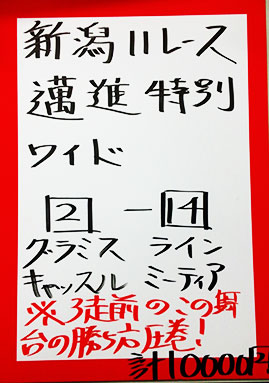 新潟11レース
邁進特別
ワイド
2 — 14
グラミス ライン
キャッスル ミーティア
※3走前のこの舞
台の勝ち方圧巻!
計10000円